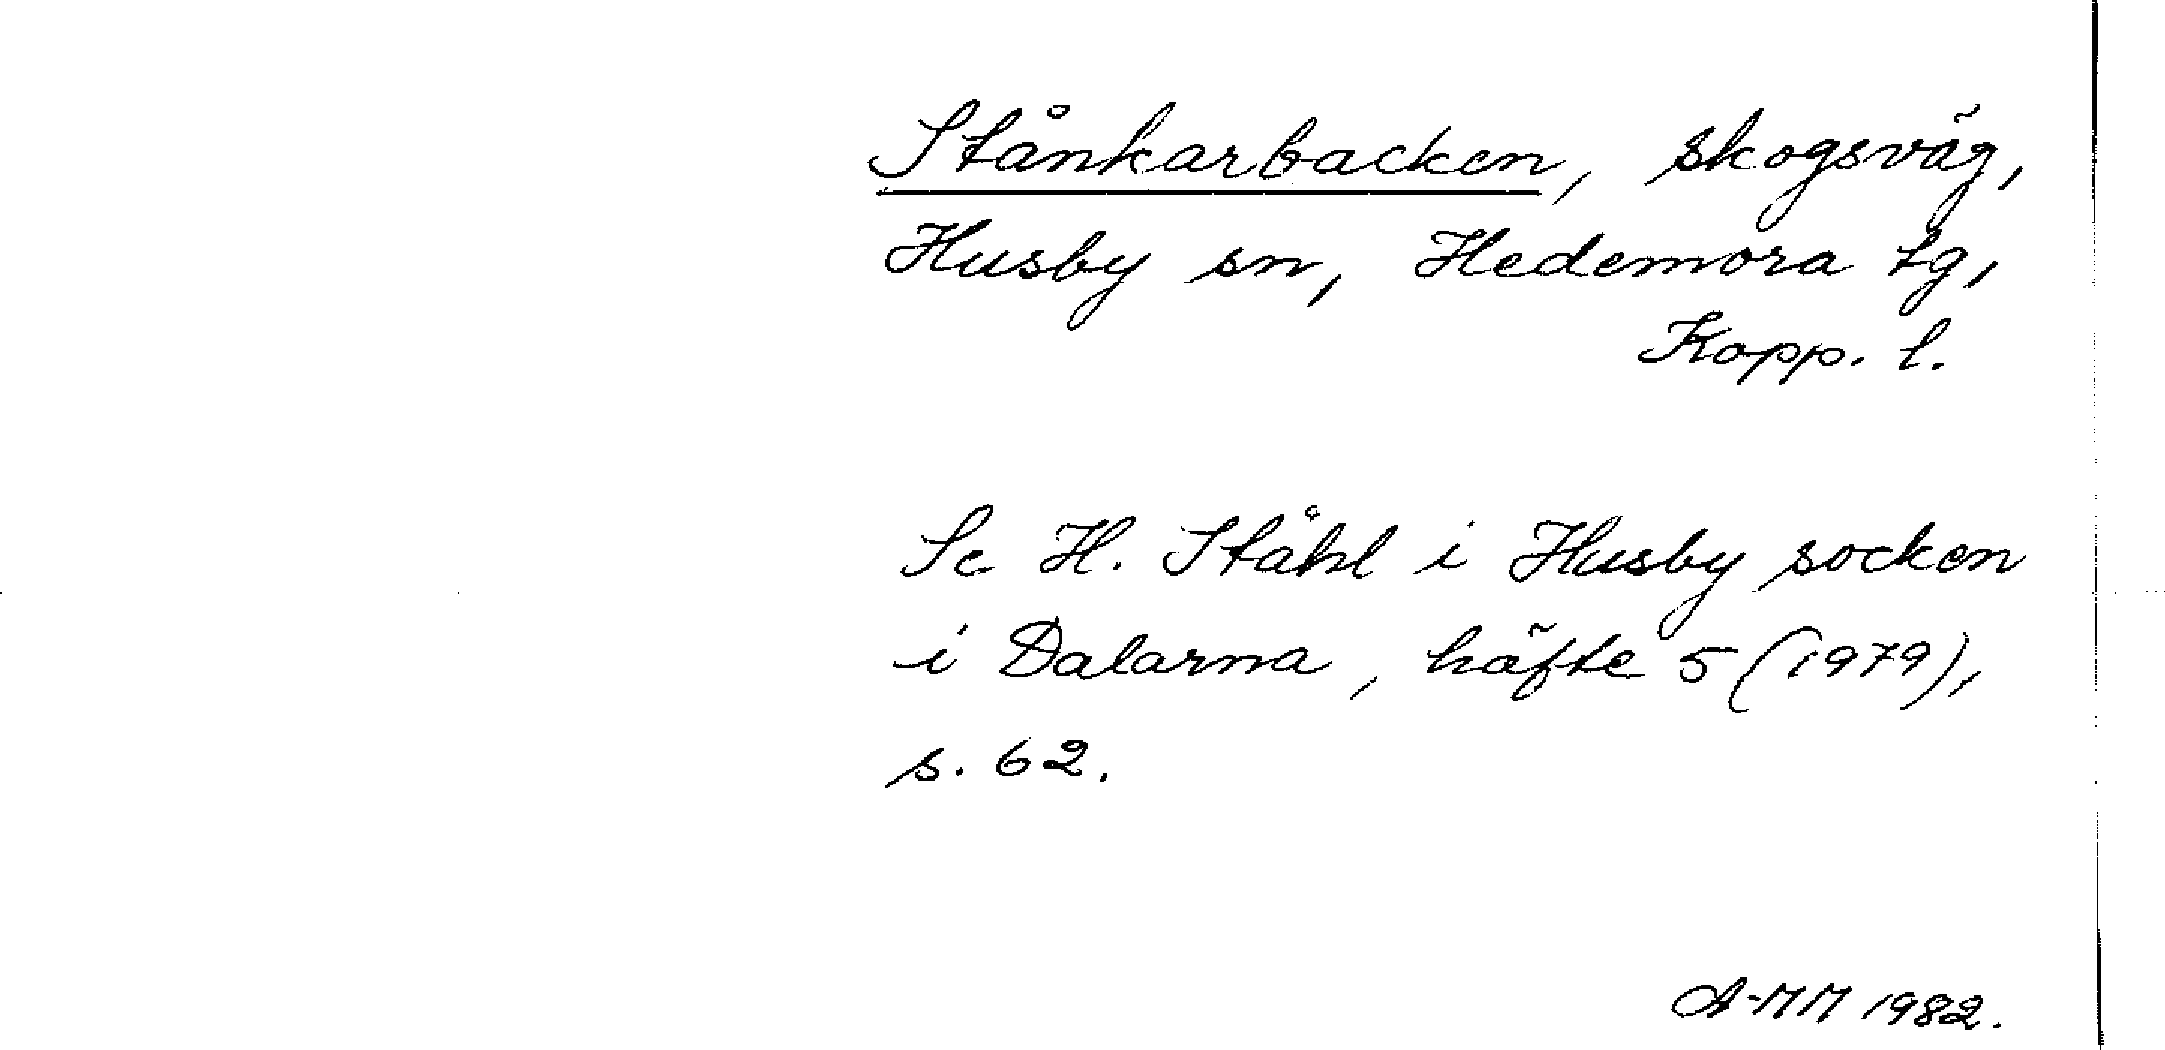 Stånkarbacken, skogsväg,
Husby sn, Hedemora tg,
Kopp. l.
Se H. Ståhl i Husby socken
i Dalarna, häfte 5 (1979),
s. 62.
A-MM 1982.